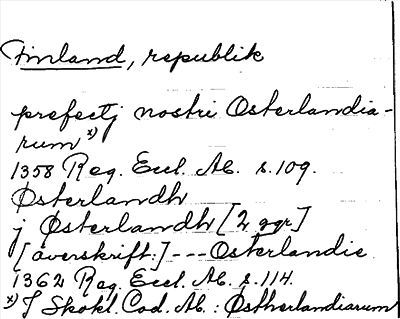 Finland, republik
prefectj nostri Østerlandia-
rum x)
1358 Reg. Eccl. Ab. s. 109.
Østerlandh
j Østerlandh [2 ggr]
[överskrift:] --- Osterlandie
1362 Reg. Eccl. Ab. s. 114.
x) I Skokl. Cod. Ab.: Østherlandiarum